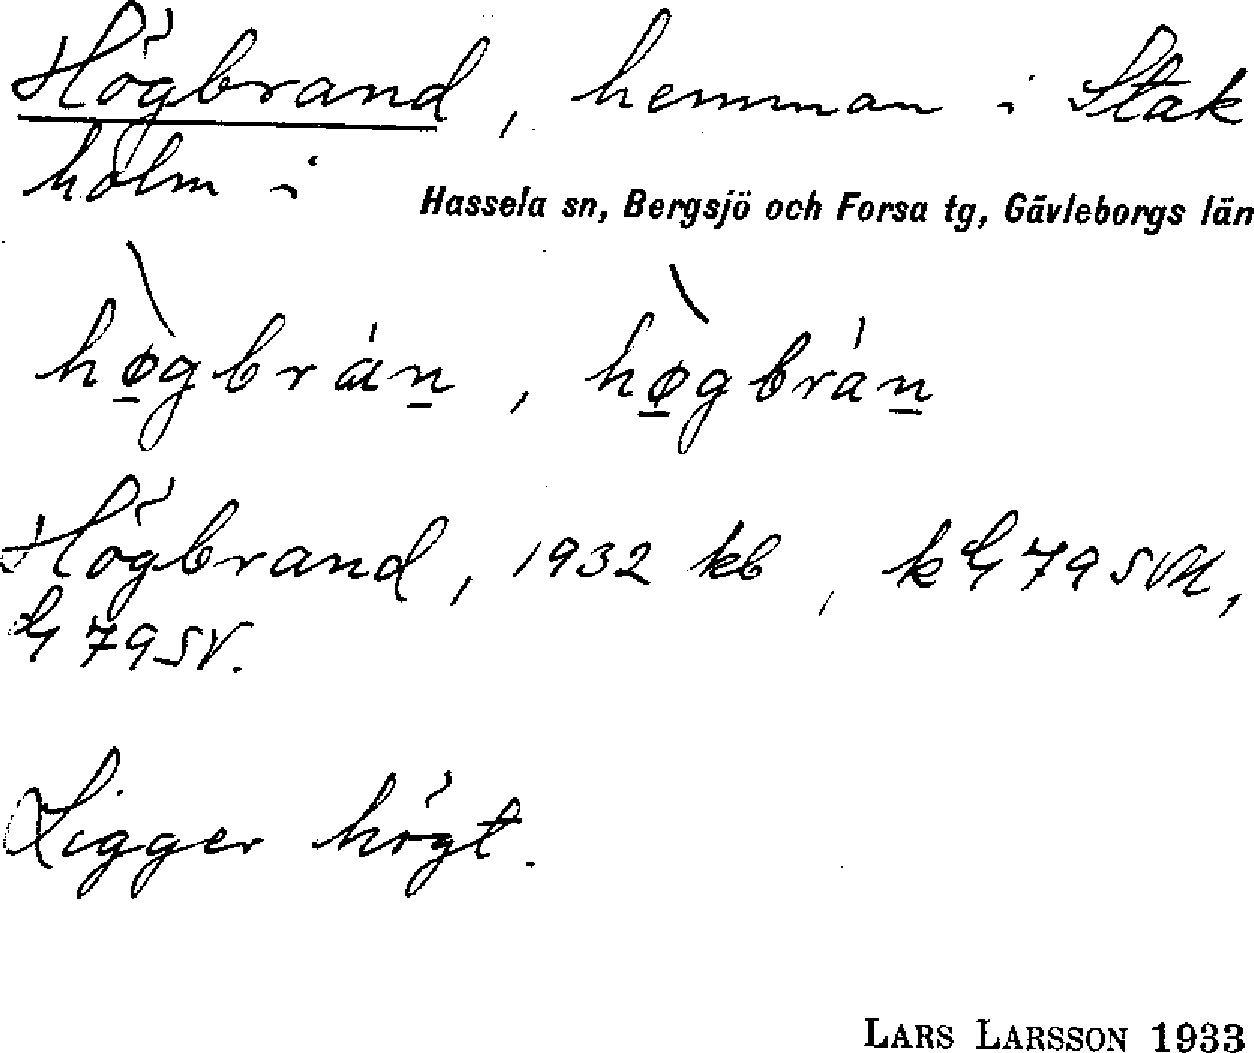 Högbrand, hemman i Stak
holm i Hassela sn, Bergsjö och Forsa tg, Gävleborgs län
hø̠̀gbrán̠, hø̠̀gbrán̠
Högbrand, 1932 kb, k 79 SV
79 SV.
Ligger högt.
LARS LARSSON 1933